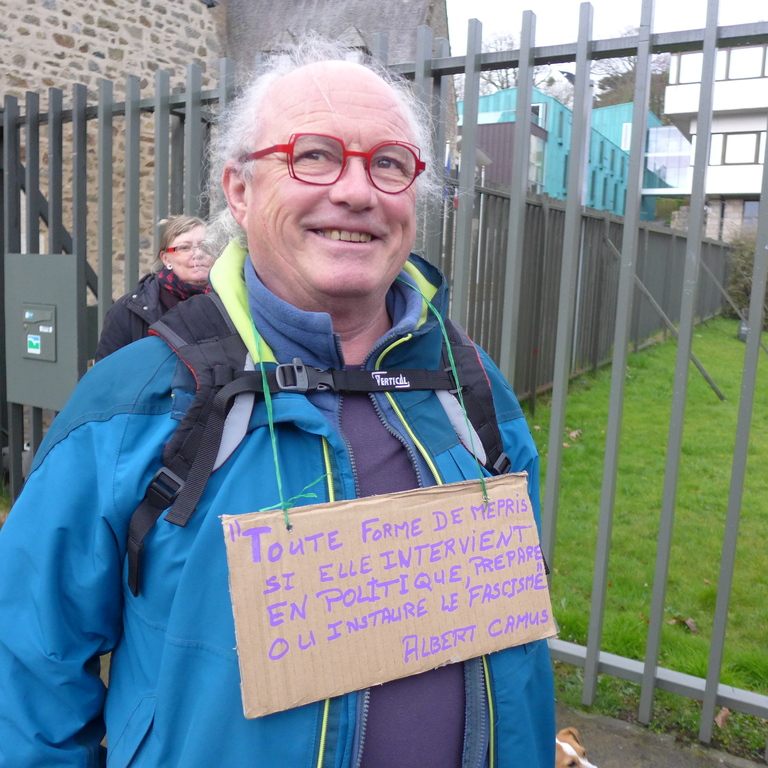 VERTICAL
"TOUTE FORME DE MEPRIS
SI ELLE INTERVIENT
EN POLITIQUE, PREPARE
OU INSTAURE LE FASCISME"
ALBERT CAMUS